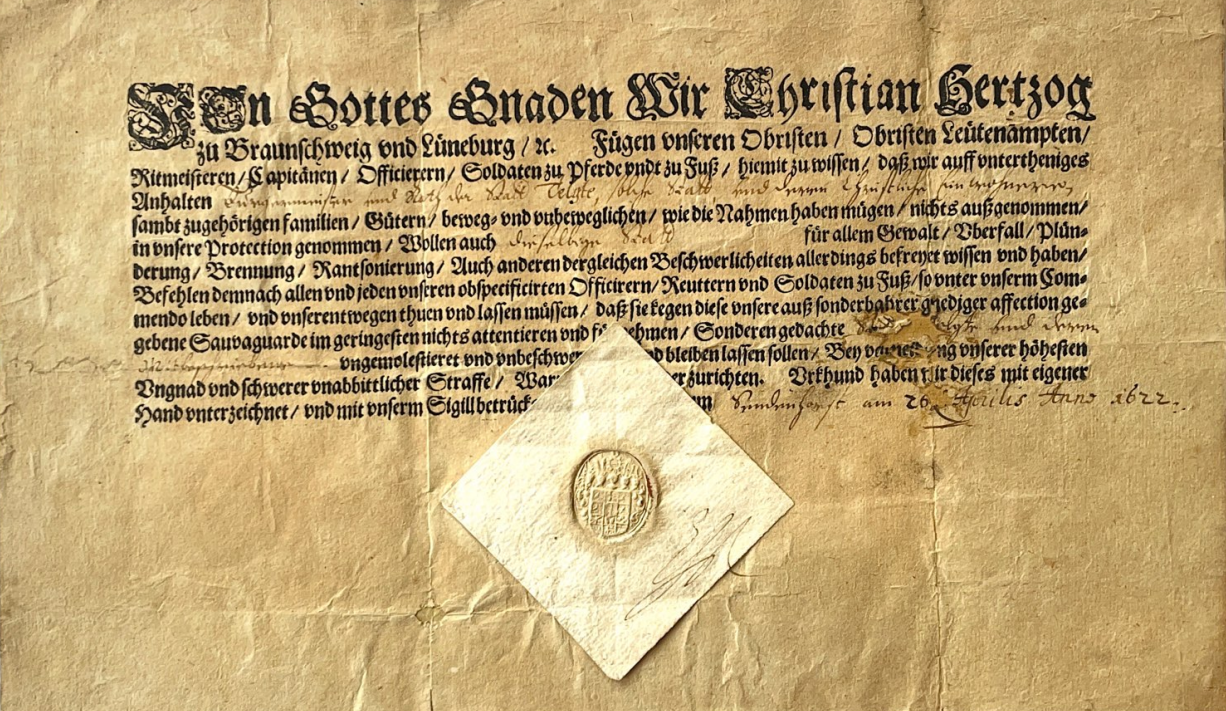 VOn Gottes Gnaden Wir Christian Hertzog
zu Braunschweig vnd Lüneburg / ꝛc. Fügen vnseren Obristen / Obristen Leütenämpten /
Ritmeisteren / Capitänen / Officierern / Soldaten zu Pferde vndt zu Fuß / hiemit zu wissen / daß wir auff vntertheniges
Anhalten Burgermeister und Rath der Statt Telgte, solche Statt und deren
sambt zugehörigen familien / Gütern / beweg- vnd vnbeweglichen / wie die Nahmen haben mügen / nichts außgenommen /
in vnsere Protection genommen / Wollen auch dieselbige Statt für allem Gewalt / Vberfall / Plün-
derung / Brennung / Rantsonierung / Auch anderen dergleichen Beschwerlicheiten allerdings befreyet wissen vnd haben /
Befehlen demnach allen vnd jeden vnseren obspecificirten Officirern / Reuttern vnd Soldaten zu Fuß / so vnter vnserm Com-
mendo leben / vnd vnserentwegen thuen vnd lassen müssen / daß sie kegen diese vnsere auß sonderbahrer gnediger affection ge-
gebene Sauvaguarde im geringesten nichts attentieren vnd fürnehmen / Sonderen gedachte Statt Telgte und deren
vngemolestieret vnd vnbeschwe nd bleiben lassen sollen / Bey vermeidung vnserer höhesten
Vngnad vnd schwerer vnabbittlicher Straffe / War er zurichten. Vrkhund haben wir dieses mit eigener
Hand vnterzeichnet / vnd mit vnserm Sigill betrück am Sendenhorst am 26 Aprilis Anno 1622.